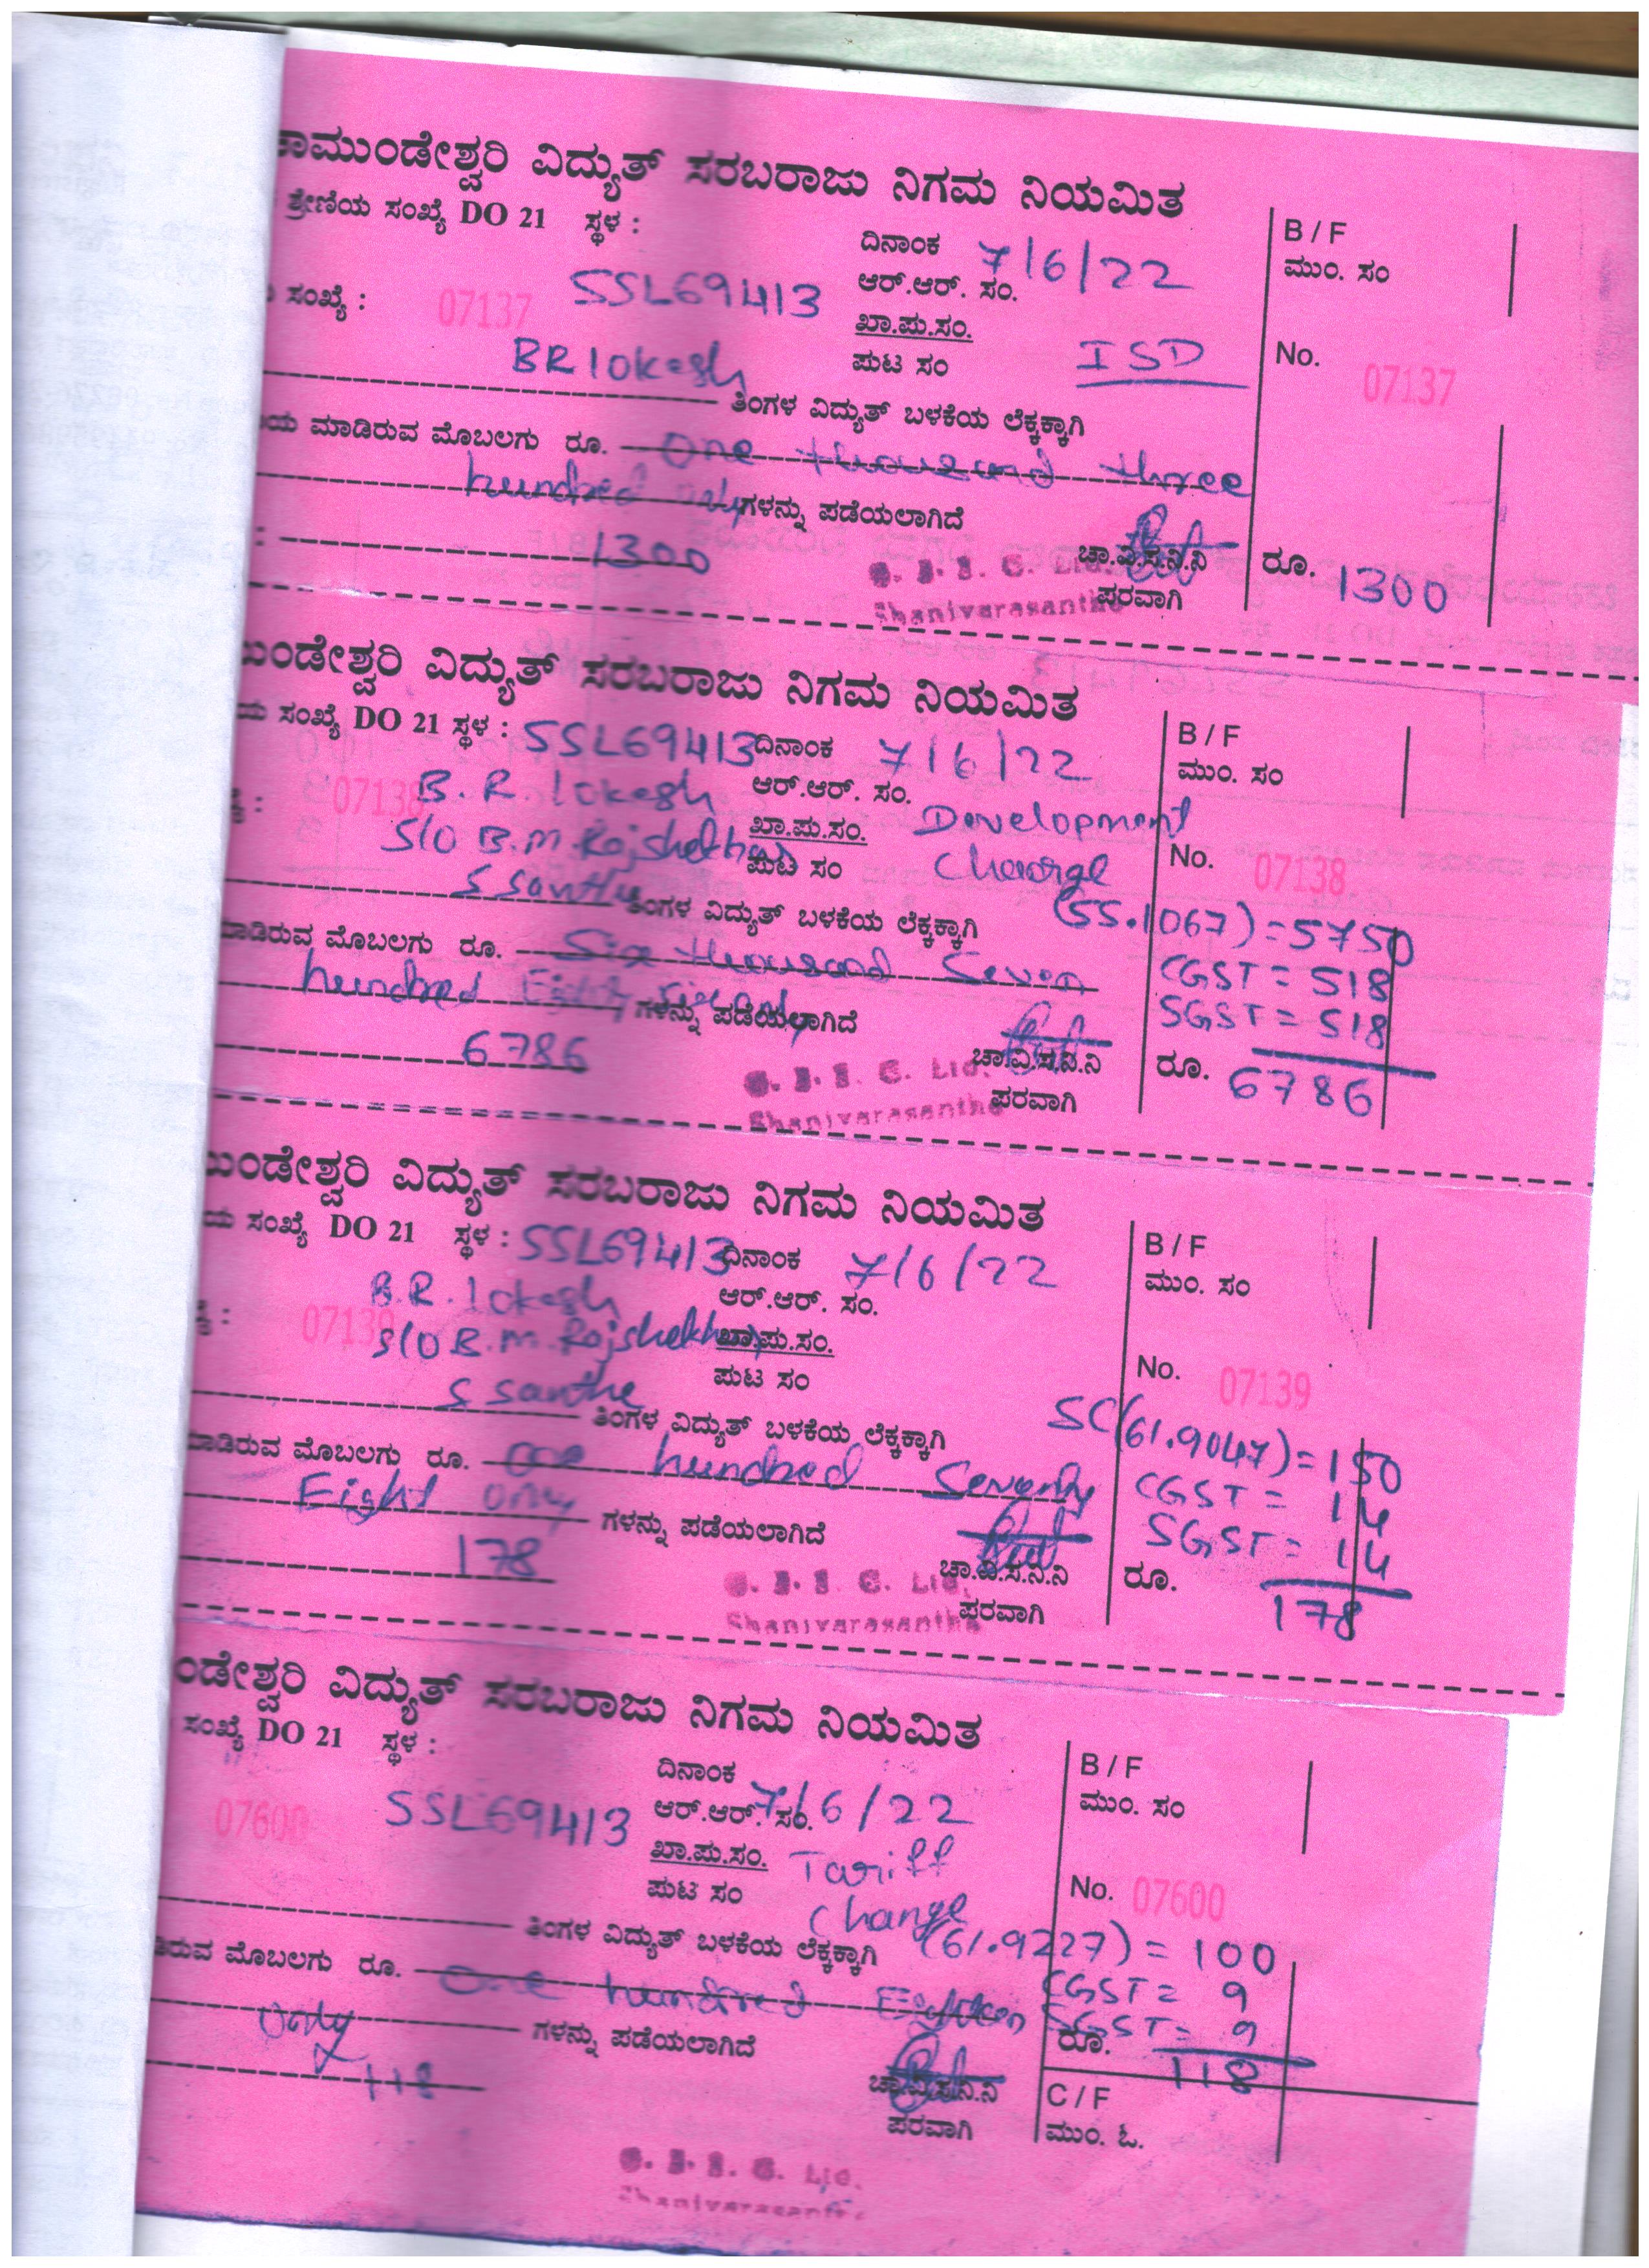 ಾಮುಂಡೇಶ್ವರಿ ವಿದ್ಯುತ್ ಸರಬರಾಜು ನಿಗಮ ನಿಯಮಿತ
ಶ್ರೇಣಿಯ ಸಂಖ್ಯೆ DO 21 ಸ್ಥಳ :
ದಿನಾಂಕ 7/6/22
B / F
ಮುಂ. ಸಂ
ಸಂಖ್ಯೆ : 07137 SSL69413
ಆರ್.ಆರ್. ಸಂ.
ಖಾ.ಪು.ಸಂ.
BR lokesh
ಪುಟ ಸಂ ISD
No. 07137
ತಿಂಗಳ ವಿದ್ಯುತ್ ಬಳಕೆಯ ಲೆಕ್ಕಕ್ಕಾಗಿ
ಯ ಮಾಡಿರುವ ಮೊಬಲಗು ರೂ. One thousand three
hundred only ಗಳನ್ನು ಪಡೆಯಲಾಗಿದೆ
: 1300
ಚಾ.ವಿ.ಸ.ನಿ.ನಿ
ಪರವಾಗಿ
Shanivarasanthe
ರೂ. 1300
ುಂಡೇಶ್ವರಿ ವಿದ್ಯುತ್ ಸರಬರಾಜು ನಿಗಮ ನಿಯಮಿತ
ಯ ಸಂಖ್ಯೆ DO 21 ಸ್ಥಳ : SSL69413 ದಿನಾಂಕ 7/6/22
B / F
ಮುಂ. ಸಂ
07138 B.R. lokesh ಆರ್.ಆರ್. ಸಂ.
S/O B.M. Rajshekhar ಖಾ.ಪು.ಸಂ. Development
S Santhe ಪುಟ ಸಂ Charge
No. 07138
ತಿಂಗಳ ವಿದ್ಯುತ್ ಬಳಕೆಯ ಲೆಕ್ಕಕ್ಕಾಗಿ (55.1067) = 5750
ಮಾಡಿರುವ ಮೊಬಲಗು ರೂ. Six thousand Seven CGST = 518
hundred Eighty ಗಳನ್ನು ಪಡೆಯಲಾಗಿದೆ SGST = 518
6786
ಚಾ.ವಿ.ಸ.ನಿ.ನಿ
ಪರವಾಗಿ
Shanivarasanthe
ರೂ. 6786
ುಂಡೇಶ್ವರಿ ವಿದ್ಯುತ್ ಸರಬರಾಜು ನಿಗಮ ನಿಯಮಿತ
ಯ ಸಂಖ್ಯೆ DO 21 ಸ್ಥಳ : SSL69413 ದಿನಾಂಕ 7/6/22
B / F
ಮುಂ. ಸಂ
07139 B.R. lokesh ಆರ್.ಆರ್. ಸಂ.
S/O B.M. Rajshekhar ಖಾ.ಪು.ಸಂ.
S Santhe ಪುಟ ಸಂ
No. 07139
ತಿಂಗಳ ವಿದ್ಯುತ್ ಬಳಕೆಯ ಲೆಕ್ಕಕ್ಕಾಗಿ SC (61.9047) = 150
ಮಾಡಿರುವ ಮೊಬಲಗು ರೂ. One hundred Seventy CGST = 14
Eight only ಗಳನ್ನು ಪಡೆಯಲಾಗಿದೆ SGST = 14
178
ಚಾ.ವಿ.ಸ.ನಿ.ನಿ
ಪರವಾಗಿ
Shanivarasanthe
ರೂ. 178
ಂಡೇಶ್ವರಿ ವಿದ್ಯುತ್ ಸರಬರಾಜು ನಿಗಮ ನಿಯಮಿತ
ಸಂಖ್ಯೆ DO 21 ಸ್ಥಳ :
ದಿನಾಂಕ 7/6/22
B / F
ಮುಂ. ಸಂ
07600 SSL69413 ಆರ್.ಆರ್. ಸಂ.
ಖಾ.ಪು.ಸಂ. Tariff
ಪುಟ ಸಂ Change
No. 07600
ತಿಂಗಳ ವಿದ್ಯುತ್ ಬಳಕೆಯ ಲೆಕ್ಕಕ್ಕಾಗಿ (61.9227) = 100
ಿರುವ ಮೊಬಲಗು ರೂ. One hundred Eighteen CGST = 9
only ಗಳನ್ನು ಪಡೆಯಲಾಗಿದೆ ರೂ. SGST = 9
118
118
ಚಾ.ವಿ.ಸ.ನಿ.ನಿ
ಪರವಾಗಿ
C / F
ಮುಂ. ಓ.
Shanivarasanthe